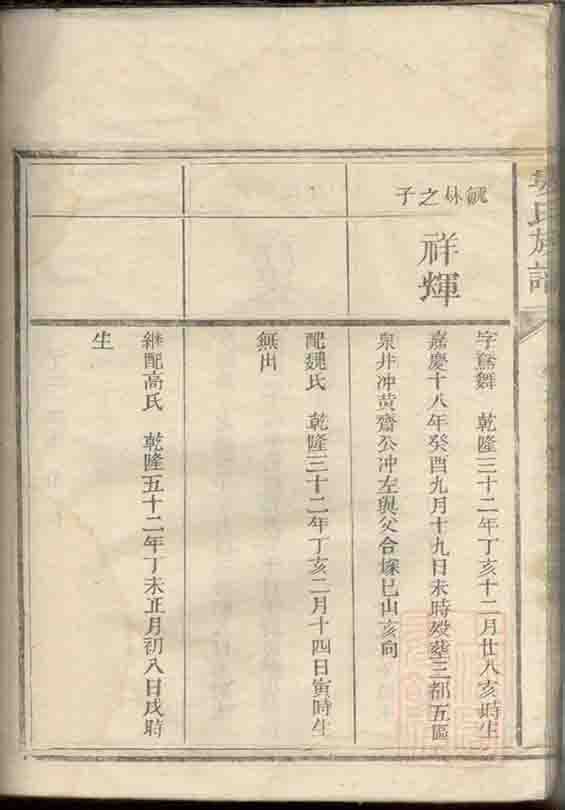 氏族譜
之子
祥輝
字鴛舞 乾隆三十二年丁亥十二月廿八亥時生
嘉慶十八年癸酉九月十九日未時歿葬三都五區
泉井冲黄齋公冲左與父合塚巳山亥向
配魏氏 乾隆三十二年丁亥二月十四日寅時生
無出
継配高氏 乾隆五十二年丁未正月初八日戌時
生